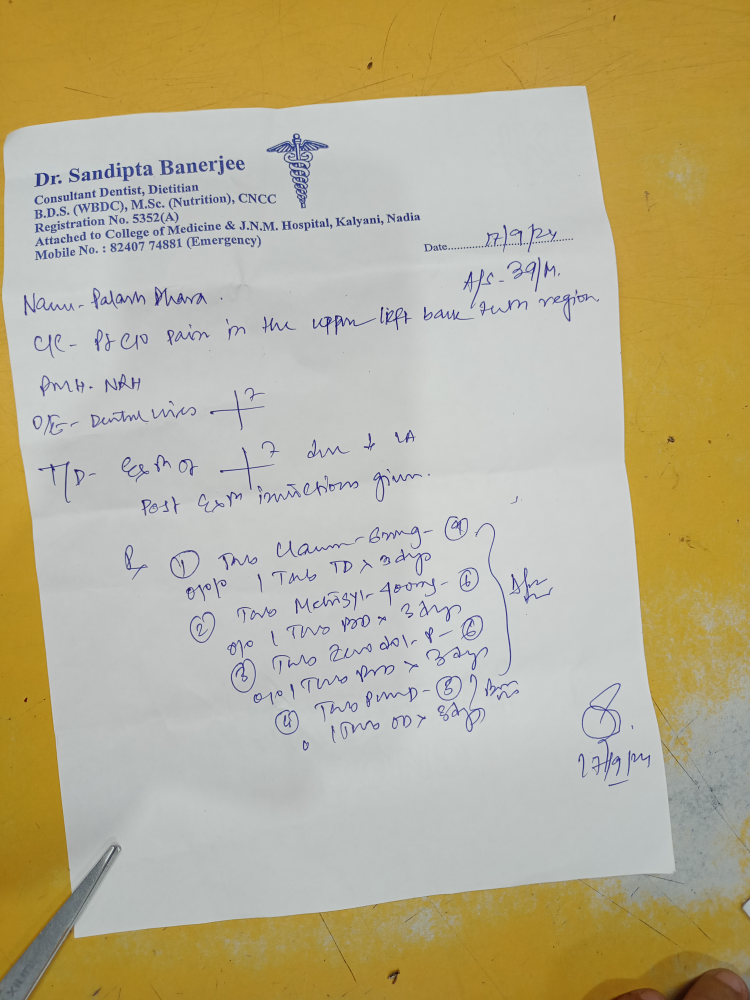 Dr. Sandipta Banerjee
Consultant Dentist, Dietitian
B.D.S. (WBDC), M.Sc. (Nutrition), CNCC
Registration No. 5352(A)
Attached to College of Medicine & J.N.M. Hospital, Kalyani, Nadia
Mobile No. : 82407 74881 (Emergency)
Date 17/9/24
Name - Palash Dhara. A/S - 39/M.
C/C - Pt C/O pain in the upper left back tooth region.
PMH - NRH
O/E - Dental caries 7
T/D - Exn of 7 done LA
Post Exn instructions given.
Rx ① Tab - 4
1 Tab TD x 3 days
② Tab Metrogyl - 400mg - 6
1 Tab BD x 3 days
③ Tab Zerodol - P - 6
1 Tab BD x 3 days
④ Tab Pan D -
1 Tab OD x days
17/9/24